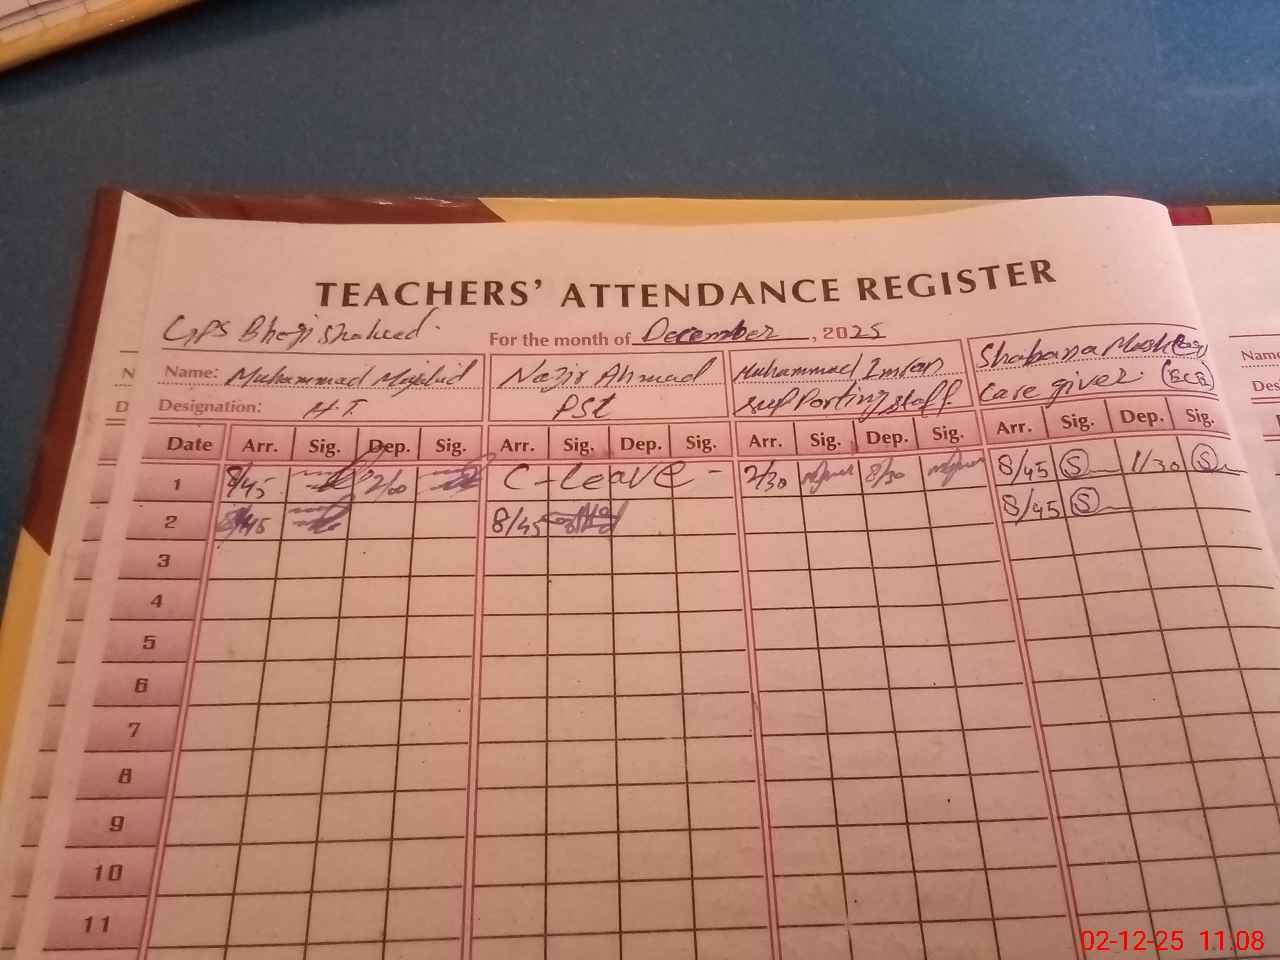 TEACHERS' ATTENDANCE REGISTER
GPS Bhogi shaheed. For the month of December, 2025
Name: Muhammad Majid Nazir Ahmad Muhammad Imran Shabana
Designation: H.T. PST supporting staff Care giver (ECE)
Date Arr. Sig. Dep. Sig. Arr. Sig. Dep. Sig. Arr. Sig. Dep. Sig. Arr. Sig. Dep. Sig.
1 8/45 2/00 C-Leave - 2/30 8/30 8/45 S 1/30 S
2 8/45 8/45 8/45 S
3
4
5
6
7
8
9
10
11
N
D
Name
Des
02-12-25 11:08